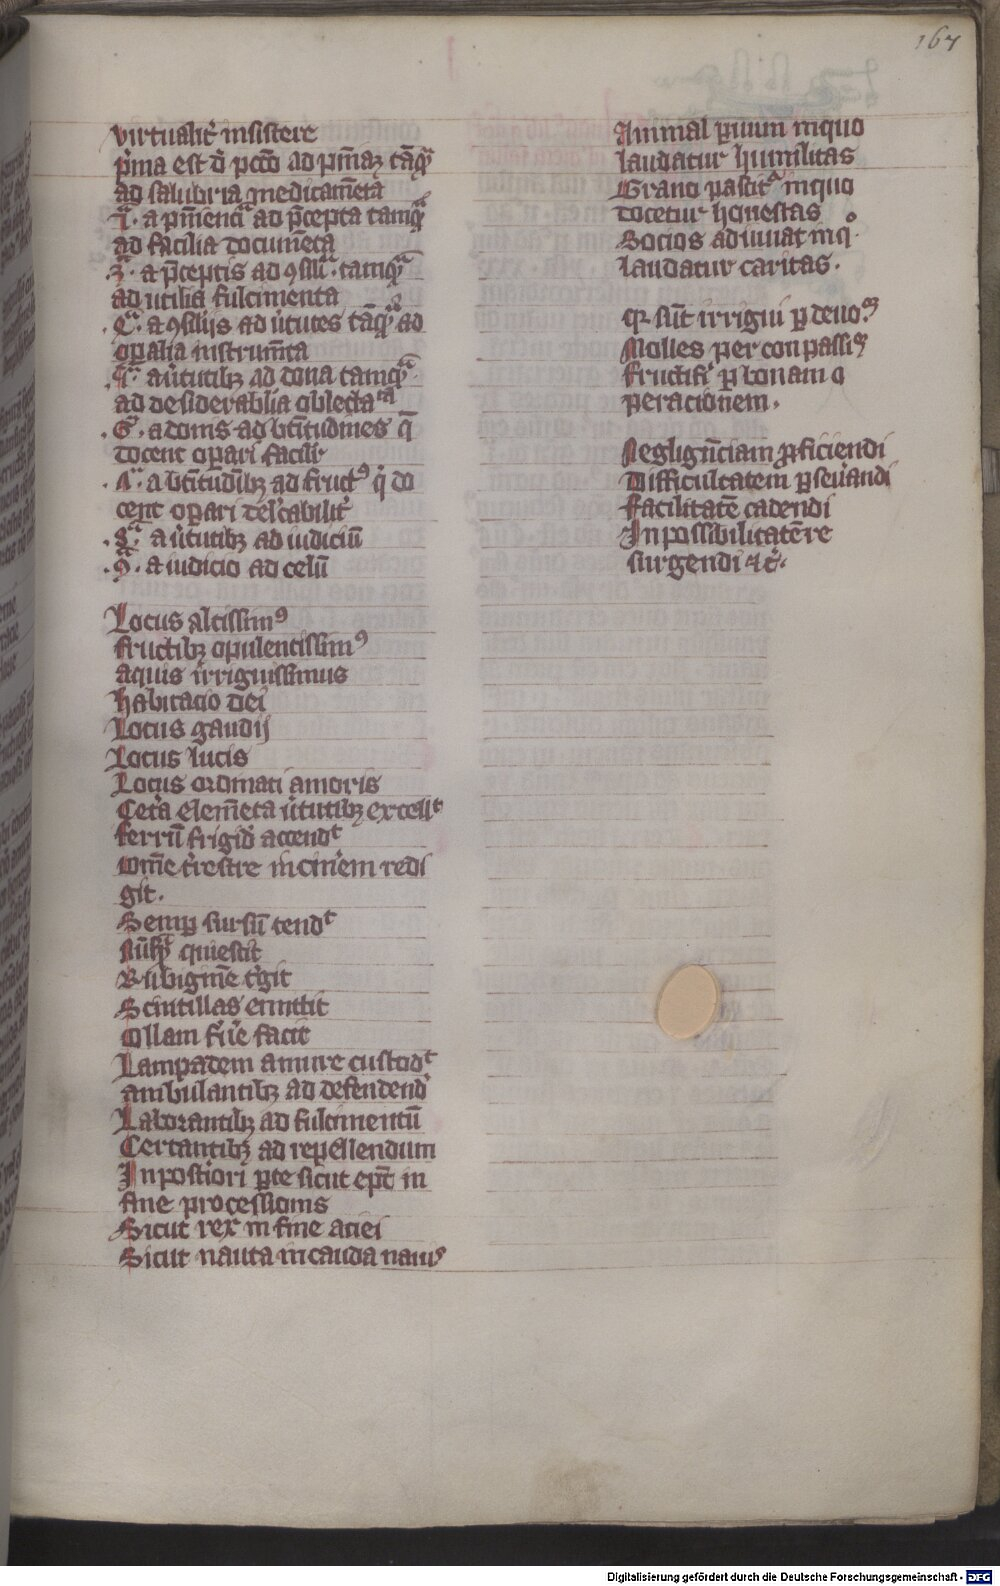 167
virtualit᷑ insistere
p᷑ma est d̄ pctō ad pn̄iaꝫ tāꝙᷓ
ad salubria medicam̄eta
.2ᷓ. a pn̄iencia ad p̄cepta tamꝙᷓ
ad facilia docum̄eta
.3ᷓ. a p̄ceptis ad ꝯsilia tamꝙᷓ
ad utilia fulcimenta
.4ᷓ. a ꝯsilijs ad v᷑tutes tāꝙᷓ ad
op̄alia instrum̄ta
.5ᷓ. a v᷑tutibꝫ ad dona tamꝙᷓ
ad desiderabilia oblectaᷓ
.6ᷓ. a donis ad bt̄itudines q̄
docent op̄ari facilit᷑
.7ᷓ. a bt̄itudībꝫ ad fructꝰ q᷑ do
cent op̄ari del᷑cabilit᷑
.8ᷓ. a v᷑tutibꝫ ad iudiciū
.9ᷓ. a iudicio ad celū
Locus altissimꝰ
fructibꝫ opulentissimꝰ
aquis irriguissimus
habitacio dei
Locus gaudij
Locus lucis
Locus ordinati amoris
Cet᷑a elem̄eta v᷑tutibꝫ excellᵗ
ferrū frigidū accendᵗ
Om̄e t᷑restre in cin᷑em redi
git.
Semꝑ sursū tendᵗ
Nūꝙᷓ quiescit
Rubigin̄e t᷑git
Scintillas emittit
Ollam f᷑u᷑e facit
Lampadem a mure custodᵗ
ambulantibꝫ ad defendend᷑
Laborantibꝫ ad fulcimentū
Certantibꝫ ad repellendum
In post᷑iori ꝑte sicut ep̄c in
fine processionis
Sicut rex in fine aciei
Sicut nauta in cauda nauis
Animal ꝑuum in quo
laudatur humilitas
Grano pascitᷓ in quo
docetur honestas
Socios adiuuat in q°
laudatur caritas.
Qr sūt irrigui ꝑ deuoꝫ
Molles per conpassiꝫ
fructif᷑ ꝑ bonam o
peracionem.
Neglign̄ciam ꝓficiendi
Difficultatem ꝑseu᷑andi
facilitatē cadendi
Inpossibilitatē re
surgendi ⁊ c᷑.
Digitalisierung gefördert durch die Deutsche Forschungsgemeinschaft - DFG